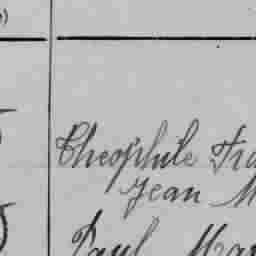 Théophile Fra
Jean M
Paul Mar